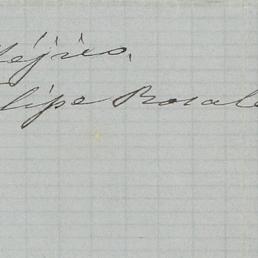 Méjico.
lipe Rosale